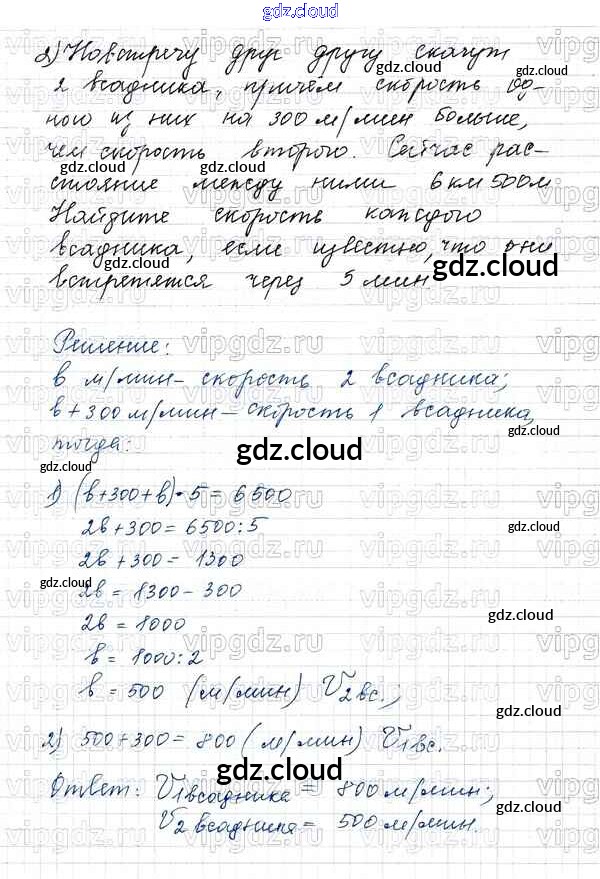 gdz.cloud
2) Навстречу друг другу скачут
2 всадника, причём скорость од-
ного из них на 300 м/мин больше,
чем скорость второго. Сейчас рас-
стояние между ними 6 км 500 м
Найдите скорость каждого
всадника, если известно, что они
встретятся через 5 мин
gdz.cloud
Решение:
в м/мин – скорость 2 всадника;
в + 300 м/мин – скорость 1 всадника,
тогда:
gdz.cloud
1) (в+300+в)·5 = 6500
2в + 300 = 6500:5
2в + 300 = 1300
2в = 1300 – 300
2в = 1000
в = 1000:2
в = 500 (м/мин) V₂вс.;
2) 500+300 = 800 (м/мин) V₁вс.
gdz.cloud
Ответ: V₁всадника = 800 м/мин;
V₂всадника = 500 м/мин.
vipgdz.ru